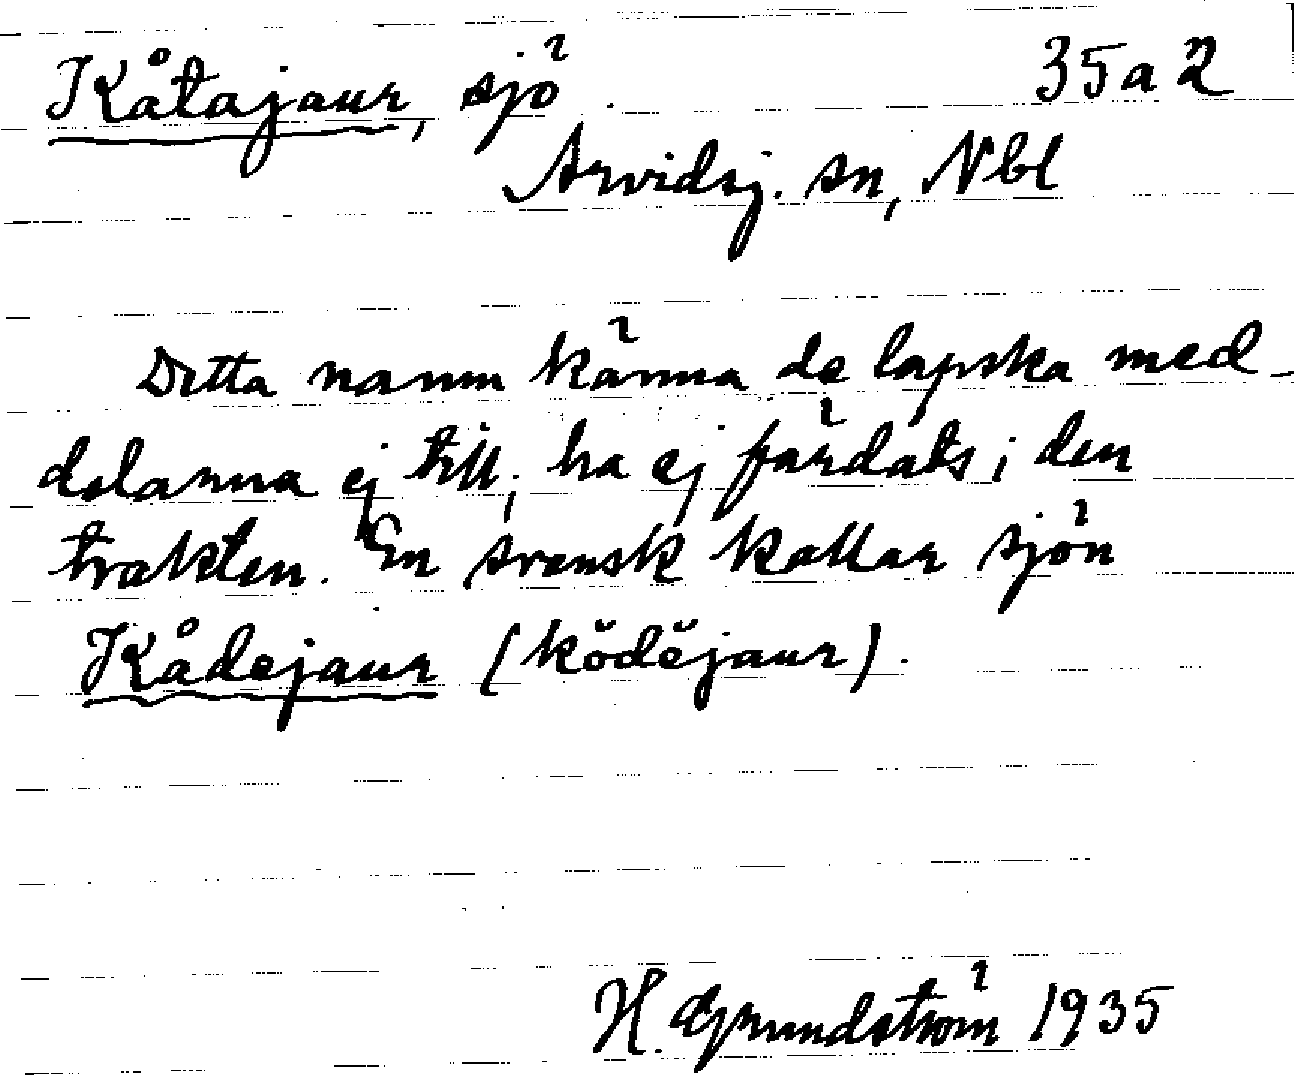 Kåtajaur, sjö. 35a2
Arvidsj. sn, Nbl
Detta namn känna de lapska med-
delarna ej till; ha ej färdats i den
trakten. En svensk kallar sjön
Kådejaur (kŏdĕjaur).
H. Grundström 1935